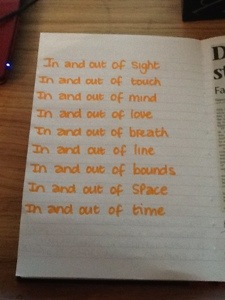 In and out of Sight
In and out of touch
In and out of mind
In and out of love
In and out of breath
In and out of line
In and out of bounds
In and out of Space
In and out of time
D
st
Fa